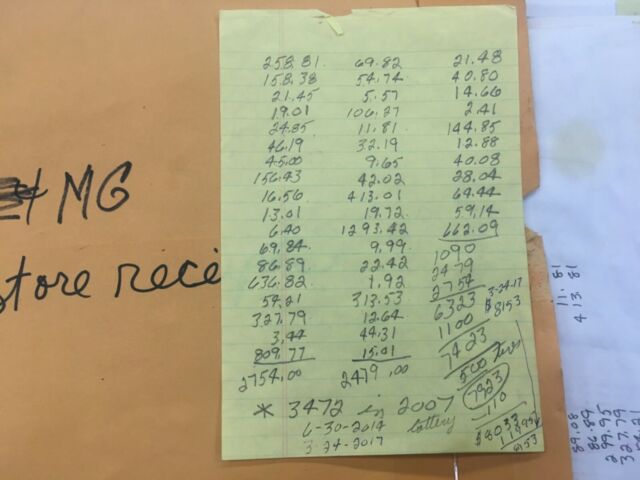 258.81 69.82 21.48
158.38 54.74 40.80
21.45 5.57 14.66
19.01 106.27 2.41
24.85 11.81 144.85
46.19 32.19 12.88
45.00 9.65 40.08
156.43 42.02 28.04
16.56 413.01 64.44
13.01 19.72 59.14
6.40 1293.42 662.09
69.84 9.99 1090
86.89 22.42 2479
636.82 1.92 2754 3-24-17
54.21 313.53 6323 $8153
327.79 12.64 1100
3.44 44.31 7423
809.77 15.01 500
2754.00 2479.00 7923
* 3472 in 2007 110
lottery
6-30-2014 $8033
3-24-2017
8153
& MG
store recei
11.81
413.81
89.08
86.89
299.95
327.79